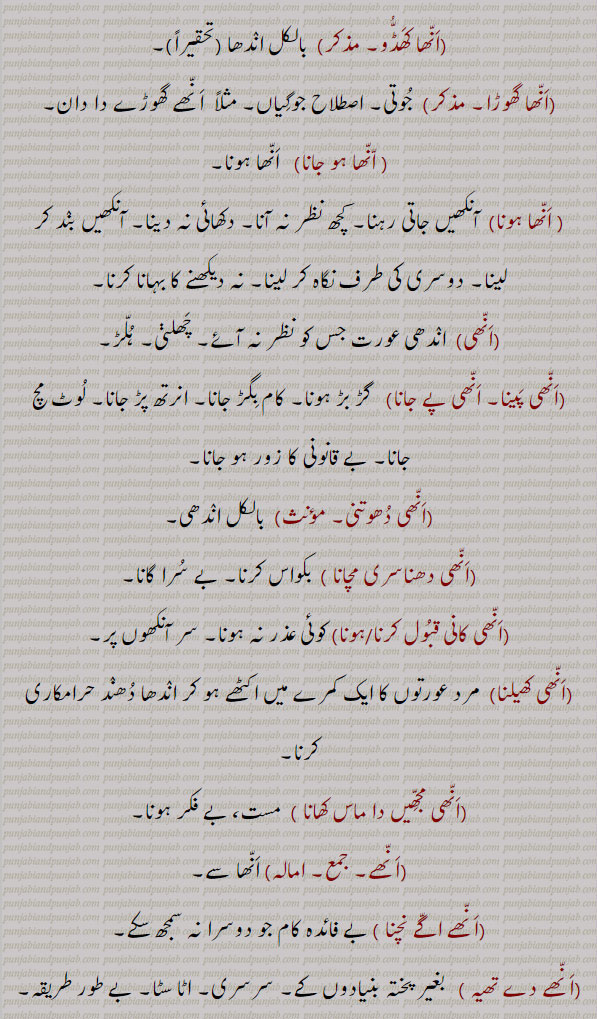 (اَنّھا کَھڈُّو۔ مذکر) بالکل اندھا (تحقیراً)۔
(اَنّھا گھوڑا۔ مذکر) جُوتی۔ اصطلاح جوگیاں۔ مثلاً اَنّھے گھوڑے دا دان۔
( اَنّھا ہو جانا) اَنّھا ہونا۔
( اَنّھا ہونا) آنکھیں جاتی رہنا۔ کچھ نظر نہ آنا۔ دکھائی نہ دینا۔ آنکھیں بند کر
لینا۔ دوسری کی طرف نگاہ کر لینا۔ نہ دیکھنے کا بہانا کرنا۔
(اَنّھی) اندھی عورت جس کو نظر نہ آئے۔ چَھلنّی۔ ہُلّڑ۔
(اَنّھی پَینا۔ اَنّھی پے جانا) گڑ بڑ ہونا۔ کام بِگڑ جانا۔ انرتھ پڑ جانا۔ لُوٹ مچ
جانا۔ بے قانونی کا زور ہو جانا۔
(اَنّھی دُھوتنی۔ مؤنث) بالکل اندھی۔
(اَنّھی دھناسری مچانا ) بکواس کرنا۔ بے سُرا گانا۔
(اَنّھی کانی قبُول کرنا/ہونا) کوئی عذر نہ ہونا۔ سر آنکھوں پر۔
(اَنّھی کھیلنا) مرد عورتوں کا ایک کمرے میں اکٹھے ہو کر اندھا دُھند حرامکاری
کرنا۔
(اَنّھی مجّھیں دا ماس کھانا ) مست، بے فکر ہونا۔
(اَنّھے۔ جمع۔ امالہ) اَنّھا سے۔
(اَنّھے اگّے نچنا ) بے فائدہ کام جو دوسرا نہ سمجھ سکے۔
(اَنّھے دے تھیہ ) بغیر پختہ بنیادوں کے۔ سرسری۔ اٹا سٹا۔ بے طور طریقہ۔